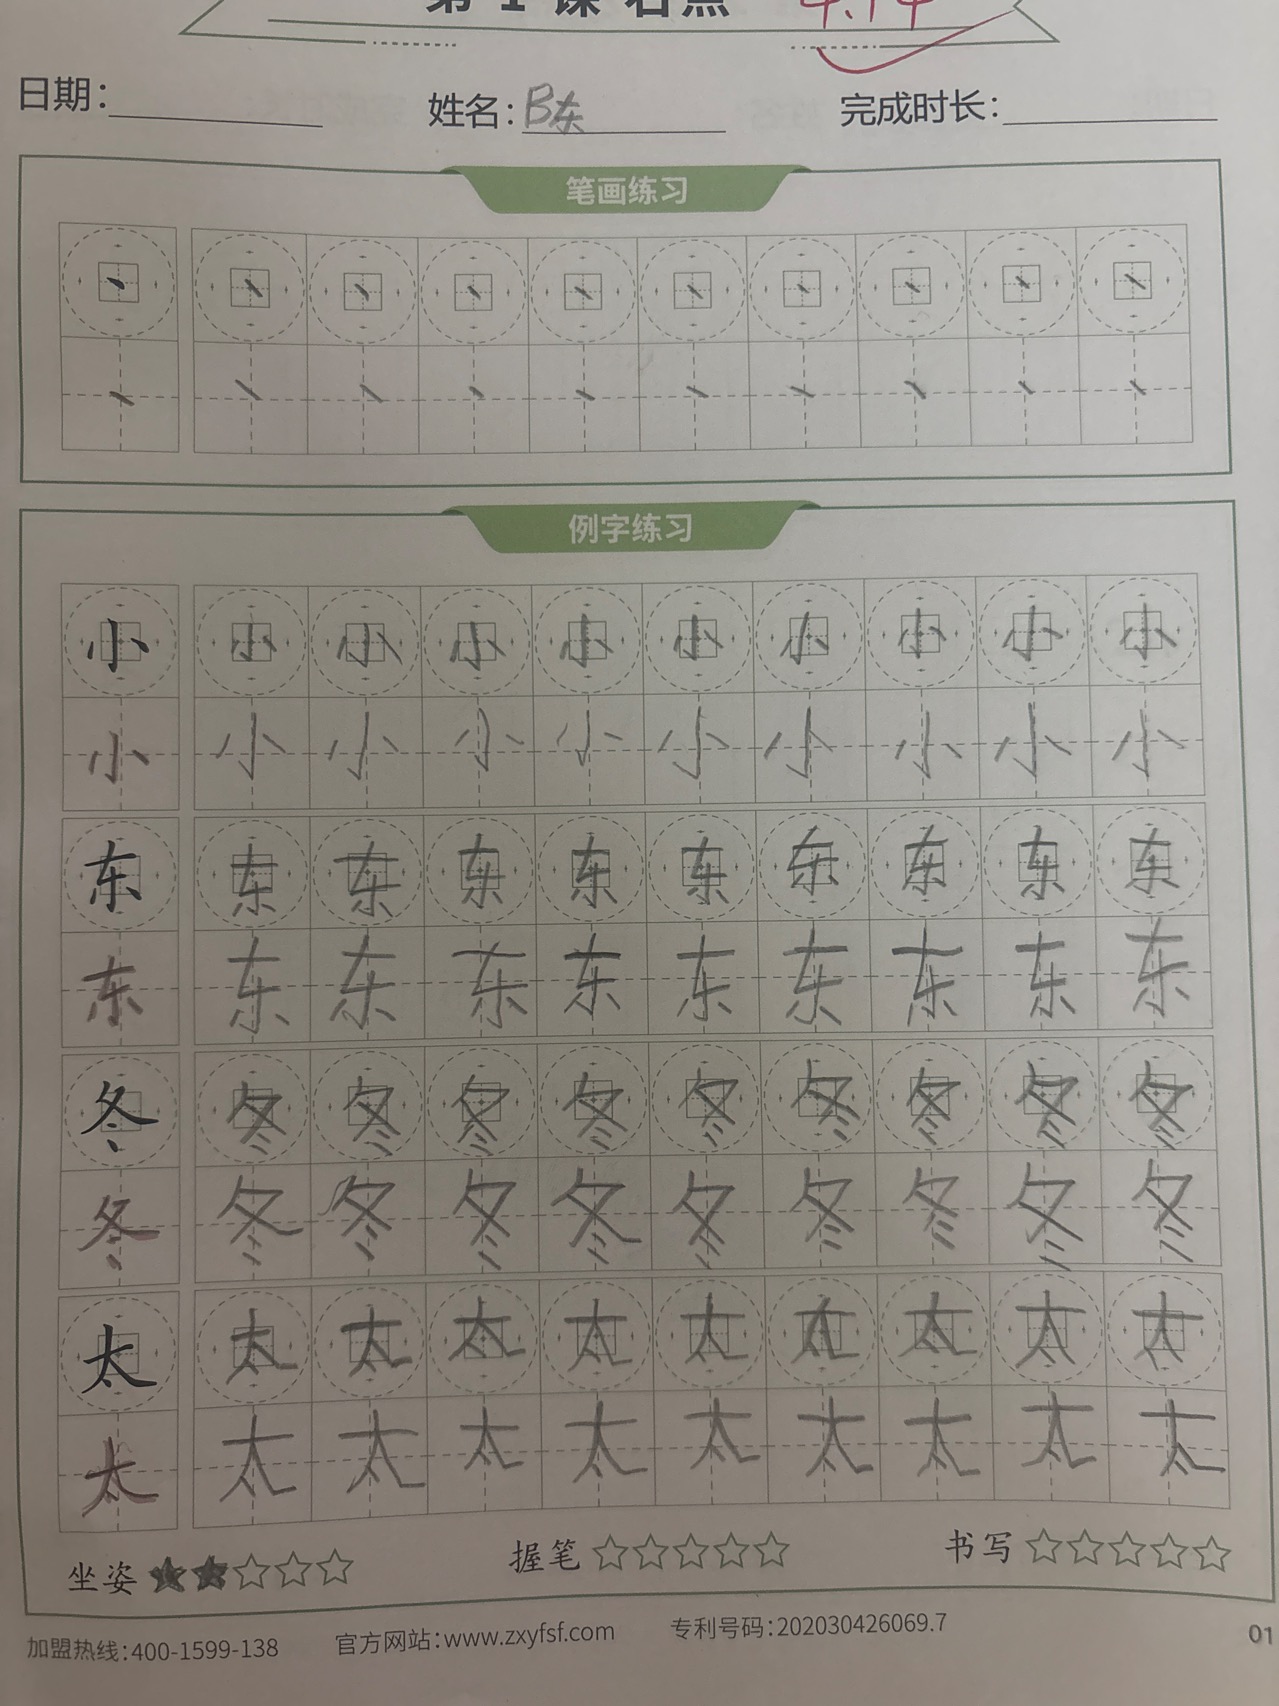 第1课 右点 4.14
日期: 姓名:B东 完成时长:
笔画练习
丶 丶 丶 丶 丶 丶 丶 丶 丶 丶
丶 丶 丶 丶 丶 丶 丶 丶 丶 丶
例字练习
小 小 小 小 小 小 小 小 小 小
小 小 小 小 小 小 小 小 小 小
东 东 东 东 东 东 东 东 东 东
东 东 东 东 东 东 东 东 东 东
冬 冬 冬 冬 冬 冬 冬 冬 冬 冬
冬 冬 冬 冬 冬 冬 冬 冬 冬 冬
太 太 太 太 太 太 太 太 太 太
太 太 太 太 太 太 太 太 太 太
坐姿 握笔 书写
加盟热线:400-1599-138 官方网站:www.zxyfsf.com 专利号码:202030426069.7 01